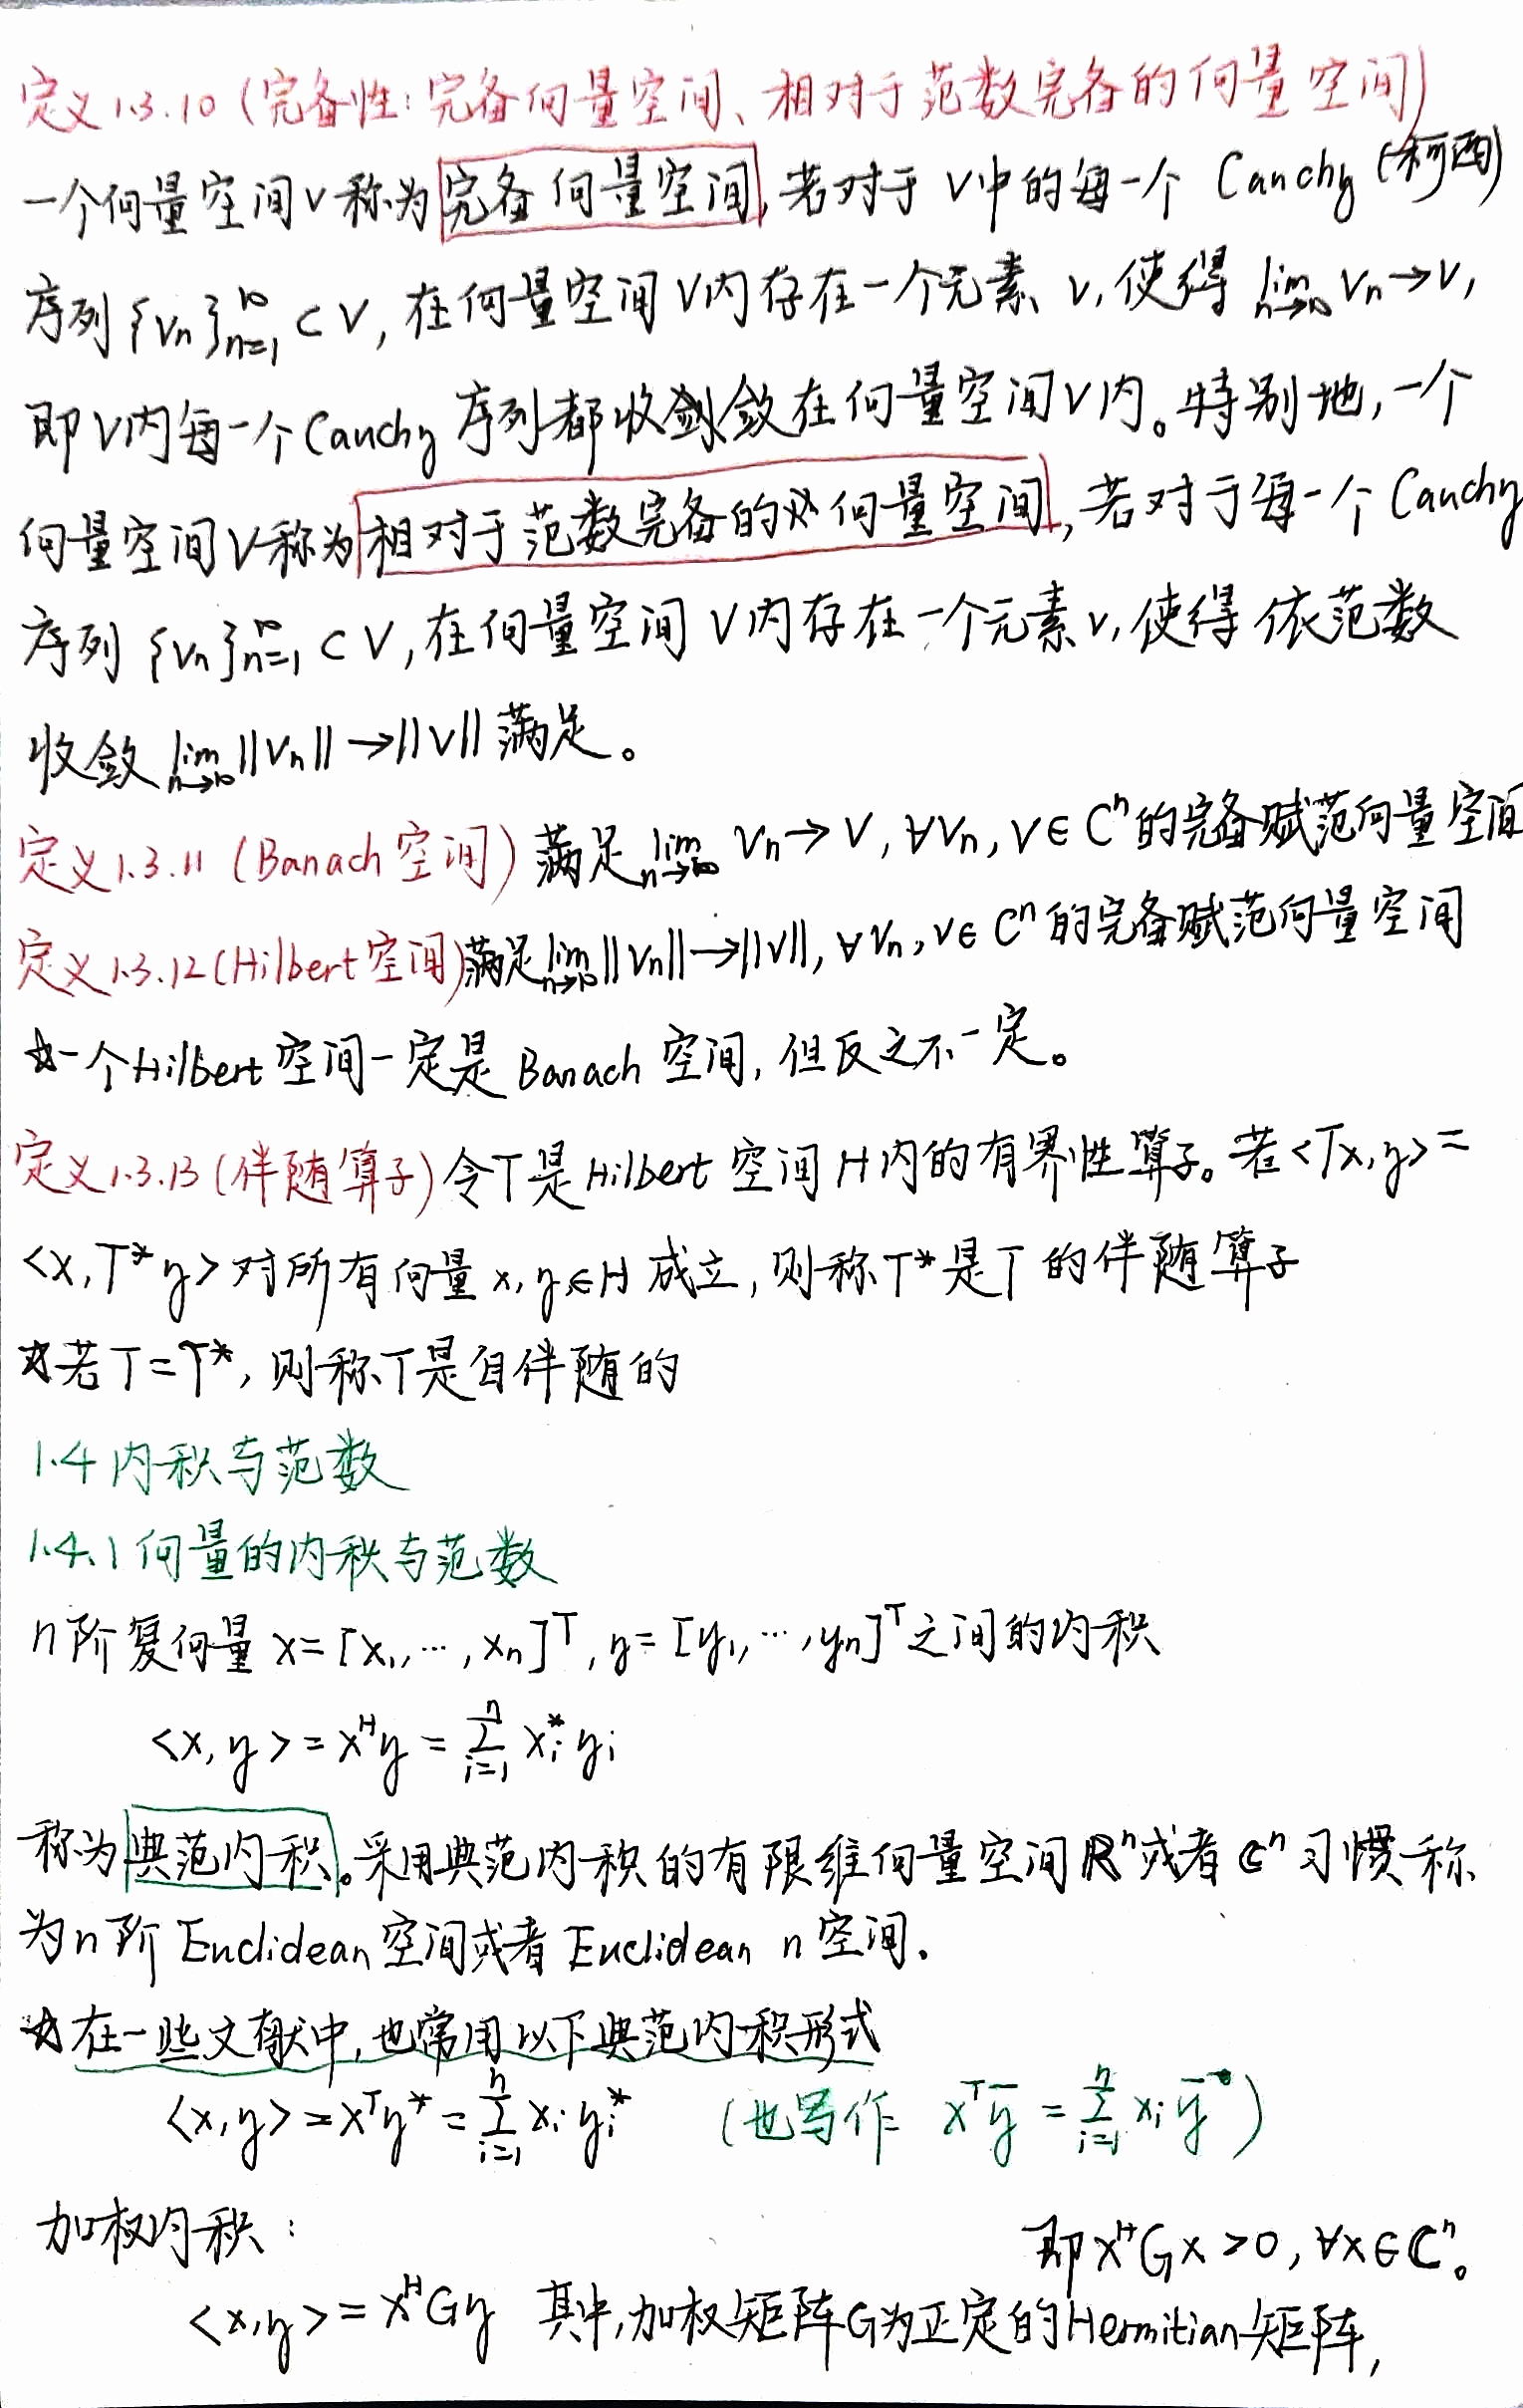 定义1.3.10 (完备性:完备向量空间、相对于范数完备的向量空间)
一个向量空间V称为完备向量空间,若对于V中的每一个 Cauchy (柯西)
序列 {vₙ}ₙ₌₁^∞ ⊂ V, 在向量空间V内存在一个元素 v, 使得 lim n→∞ vₙ→v,
即V内每一个Cauchy序列都收敛在向量空间V内。特别地,一个
向量空间V称为相对于范数完备的向量空间,若对于每一个 Cauchy
序列 {vₙ}ₙ₌₁^∞ ⊂ V, 在向量空间V内存在一个元素v, 使得依范数
收敛 lim n→∞ ||vₙ||→||v|| 满足。
定义1.3.11 (Banach空间) 满足 lim n→∞ vₙ→v, ∀vₙ, v∈Cⁿ的完备赋范向量空间
定义1.3.12 (Hilbert空间) 满足 lim n→∞ ||vₙ||→||v||, ∀vₙ, v∈Cⁿ的完备赋范向量空间
☆一个Hilbert空间一定是Banach空间, 但反之不一定。
定义1.3.13 (伴随算子) 令T是Hilbert空间H内的有界性算子。若<Tx,y>=
<x,T*y>对所有向量x,y∈H成立, 则称T*是T的伴随算子
☆若T=T*, 则称T是自伴随的
1.4 内积与范数
1.4.1 向量的内积与范数
n阶复向量 x=[x₁,…,xₙ]ᵀ, y=[y₁,…,yₙ]ᵀ之间的内积
<x,y>=xᴴy=∑ᵢ₌₁ⁿ xᵢ*yᵢ
称为典范内积。采用典范内积的有限维向量空间ℝⁿ或者ℂⁿ习惯称
为n阶 Euclidean空间或者Euclidean n空间.
☆在一些文献中,也常用以下典范内积形式
<x,y>=xᵀy*=∑ᵢ₌₁ⁿ xᵢyᵢ* (也写作 xᵀȳ=∑ᵢ₌₁ⁿ xᵢȳ)
加权内积:
<x,y>=xᴴGy 其中,加权矩阵G为正定的Hermitian矩阵,
即xᴴGx>0, ∀x∈ℂⁿ。